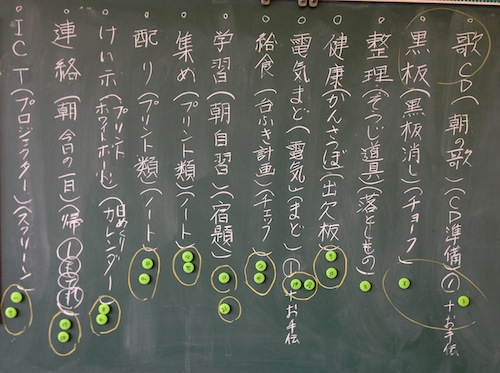 歌CD(朝の歌)(CD準備)①+お手伝
黒板(黒板消し)(チョーク)
整理(そうじ道具)(落としもの)
健康かんさつぼ(出欠板)
電気まど(電気)(まど)①+お手伝
給食(台ふき計画)(チェック)
学習(朝自習)(宿題)
集め(プリント類)(ノート)
配り(プリント類)(ノート)
けい示(プリントホワイトボード)(日めくりカレンダー)
連絡(朝 今日の一日)(帰
ICT(プロジェクター)(スクリーン)